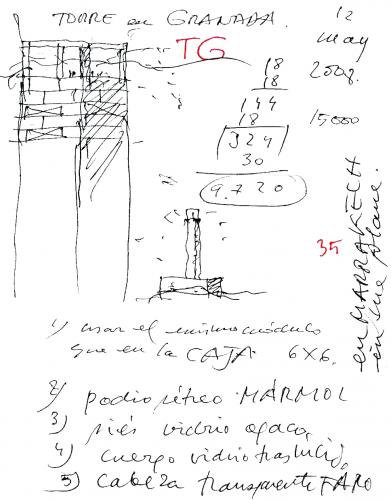 TORRE en GRANADA.
12
may
2008.
TG
18
18
144
18
324
30
9.720
15000
35
en MARRAKECH
en une plane.
1) usar el mismo módulo
que en la CAJA 6x6.
2) podio pétreo. MÁRMOL
3) piés vidrio opaco
4) cuerpo vidrio traslúcido.
5) cabeza transparente FARO